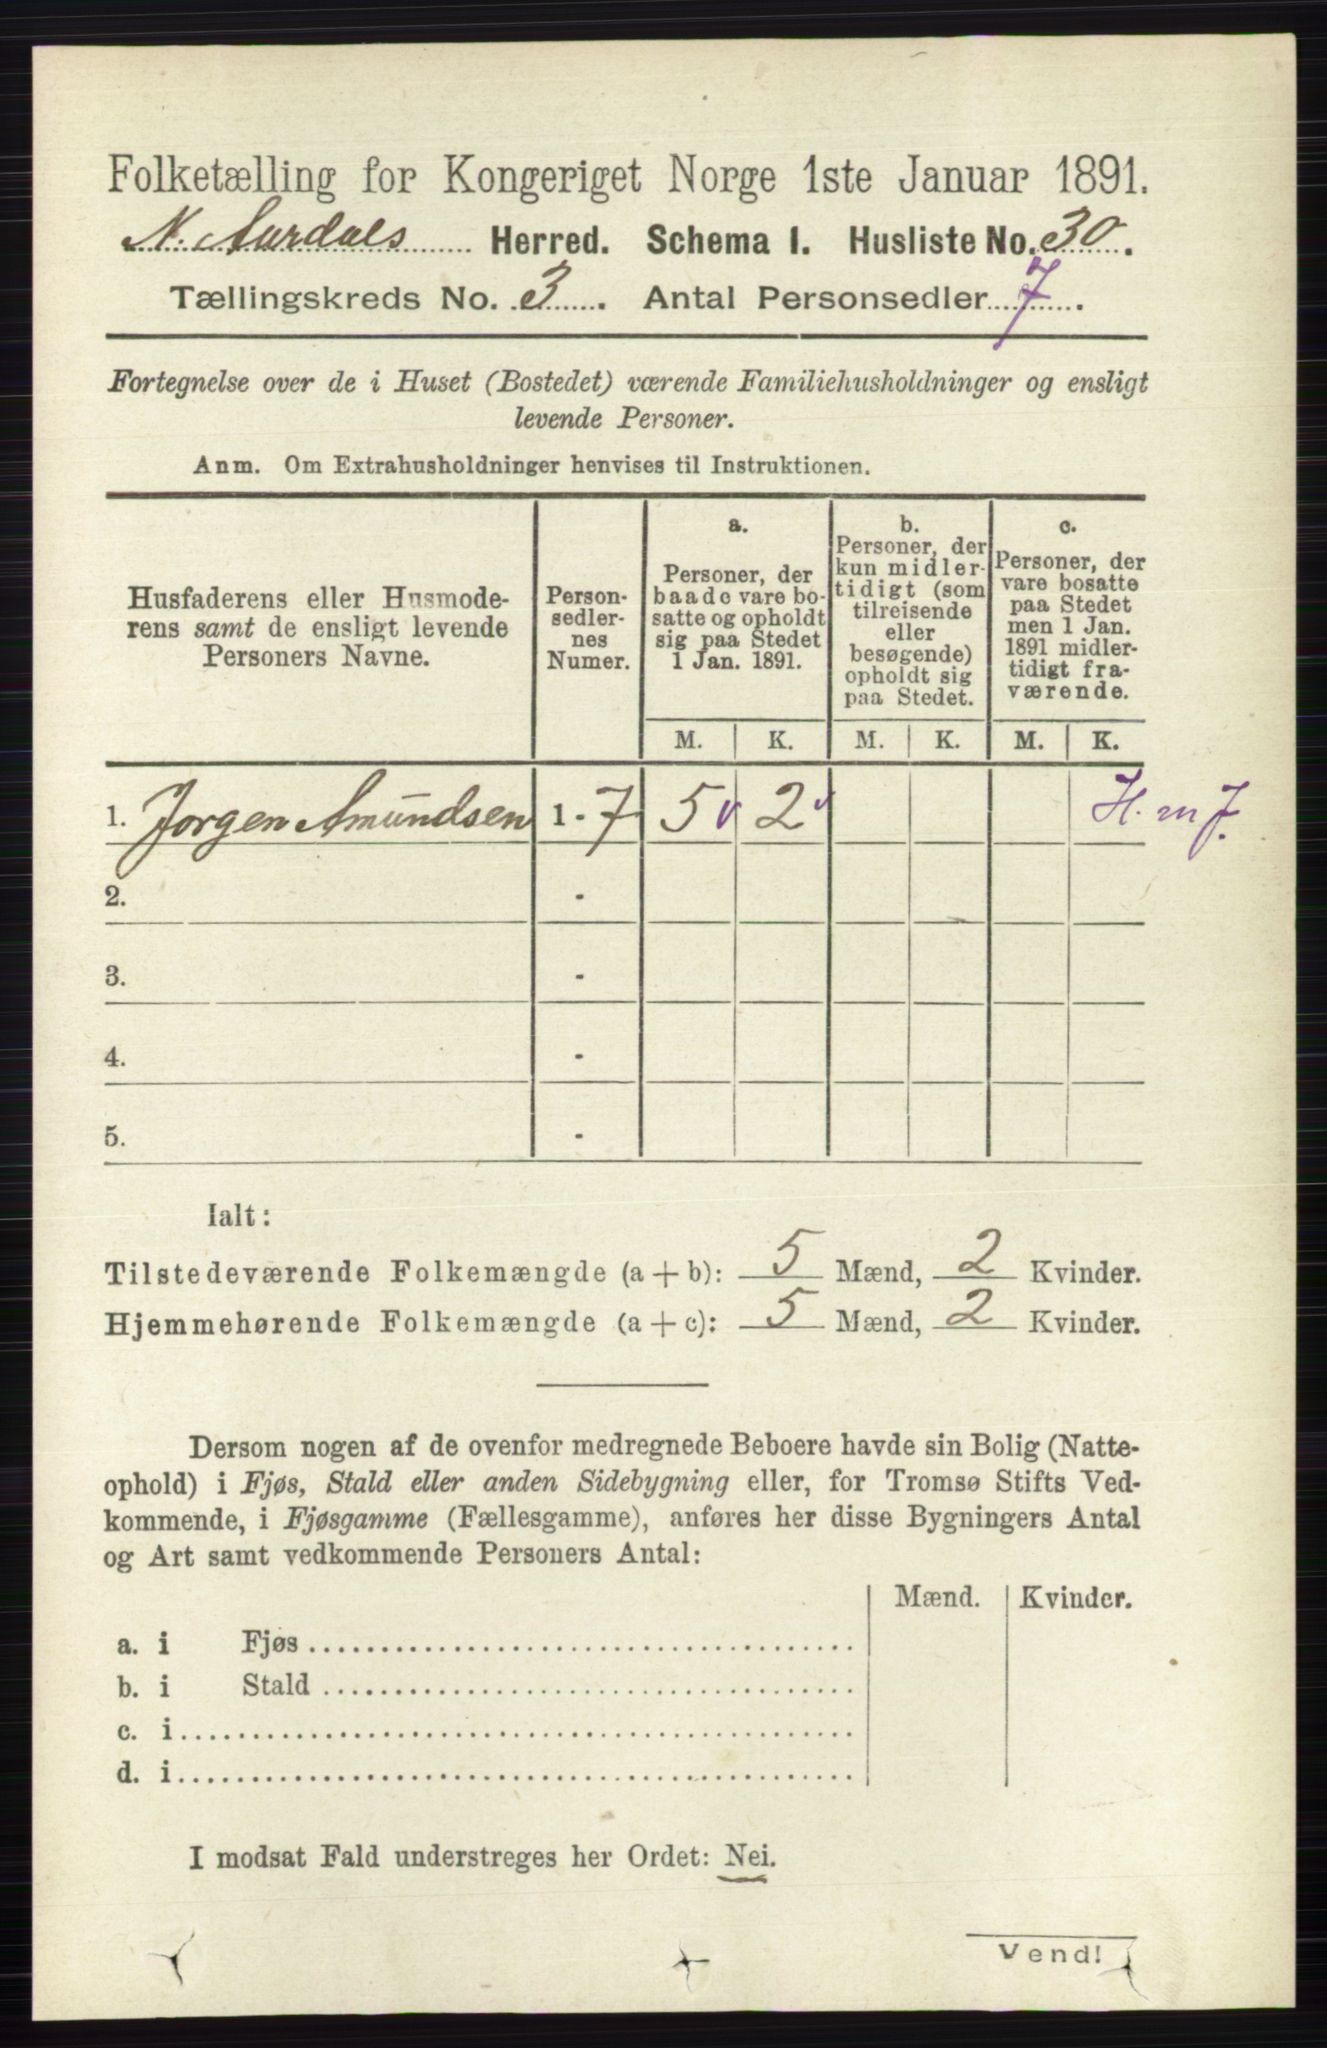 Folketælling for Kongeriget Norge 1ste Januar 1891.
N. Aurdals Herred. Schema I. Husliste No. 30.
Tællingskreds No. 3. Antal Personsedler 7.
Fortegnelse over de i Huset (Bostedet) værende Familiehusholdninger og ensligt
levende Personer.
Anm. Om Extrahusholdninger henvises til Instruktionen.
Husfaderens eller Husmode-
rens samt de ensligt levende
Personers Navne.
Person-
sedler-
nes
Numer.
a.
Personer, der
baade vare bo-
satte og opholdt
sig paa Stedet
1 Jan. 1891.
b.
Personer, der
kun midler-
tidigt (som
tilreisende
eller
besøgende)
opholdt sig
paa Stedet.
c.
Personer, der
vare bosatte
paa Stedet
men 1 Jan.
1891 midler-
tidigt fra-
værende.
M. K. M. K. M. K.
1. Jorgen Amundsen 1 - 7 5 2 H. m J.
2. -
3. -
4. -
5. -
Ialt:
Tilstedeværende Folkemængde (a + b): 5 Mænd, 2 Kvinder.
Hjemmehørende Folkemængde (a + c): 5 Mænd, 2 Kvinder.
Dersom nogen af de ovenfor medregnede Beboere havde sin Bolig (Natte-
ophold) i Fjøs, Stald eller anden Sidebygning eller, for Tromsø Stifts Ved-
kommende, i Fjøsgamme (Fællesgamme), anføres her disse Bygningers Antal
og Art samt vedkommende Personers Antal:
Mænd. Kvinder.
a. i Fjøs
b. i Stald
c. i
d. i
I modsat Fald understreges her Ordet: Nei.
Vend!